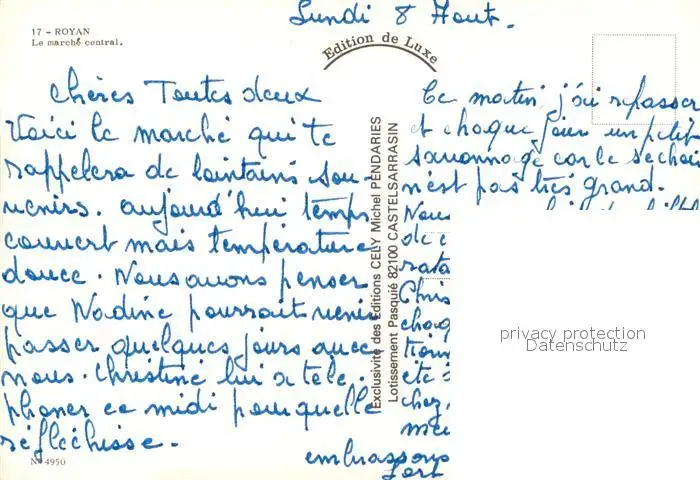 Lundi 8 Aout.
17 - ROYAN
Le marché central.
Edition de Luxe
Chères Toutes deux
Voici le marché qui te
rappelera de lointains sou-
venirs. aujourd'hui temps
couvert mais température
douce. Nous avons penser
que Nadine pourrait venir
passer quelques jours avec
nous. Christine lui a télé.
phoner ce midi pour quelle
réfléchisse.
N° 4950
Exclusivité des Editions CELY Michel PENDARIES
Lotissement Pasquié 82100 CASTELSARRASIN
Ce matin j'ai repasser
et chaque jour un petit
savonnage car le sechoir
n'est pas très grand.
Nous
de c
rata
Chris
chaq
tion
etc
chez,
me
embrassons
fort
privacy protection
Datenschutz